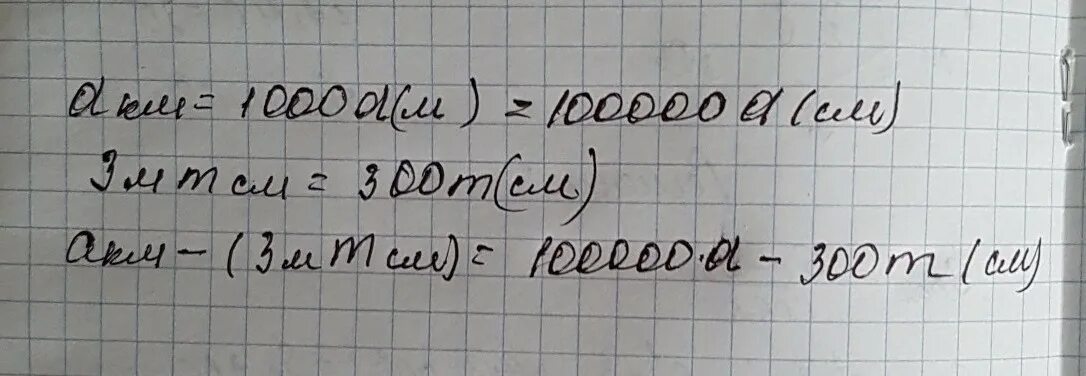 а км = 1000а(м) = 100000а(см)
3м m см = 300m(см)
а км - (3м m см) = 100000·а - 300m (см)